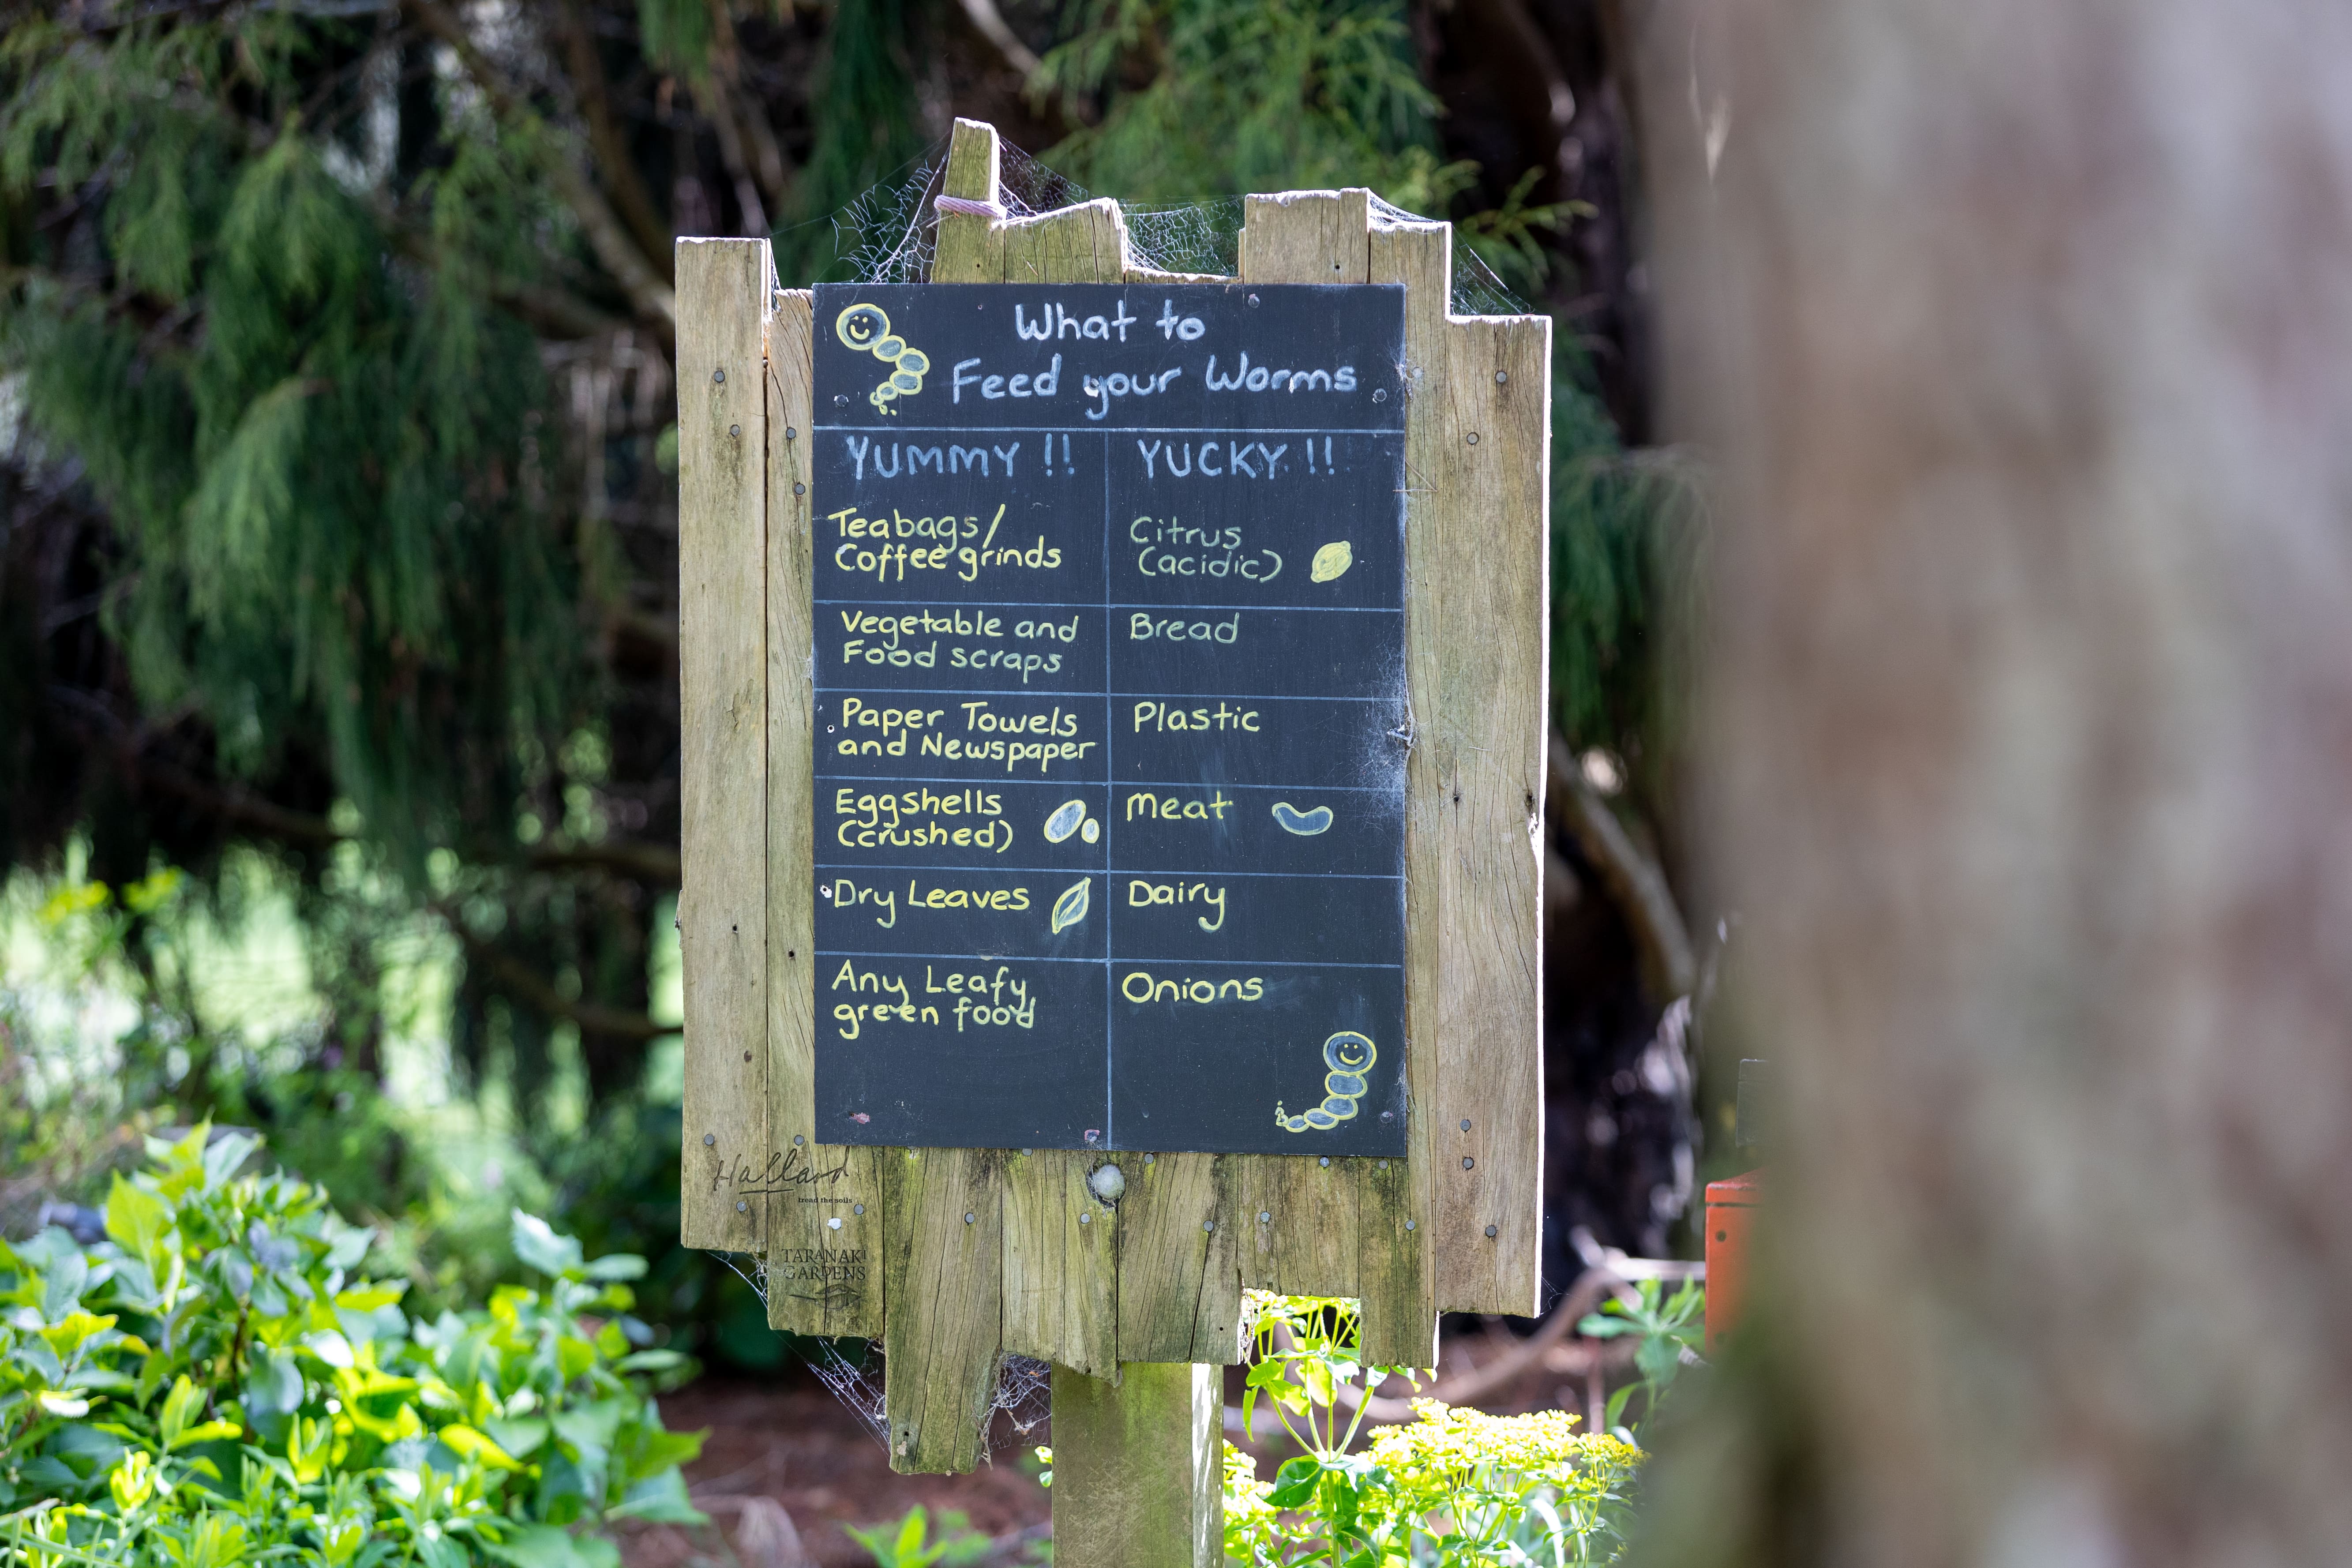 What to
Feed your Worms
YUMMY !!
YUCKY !!
Teabags/
Coffee grinds
Citrus
(acidic)
Vegetable and
Food scraps
Bread
Paper Towels
and Newspaper
Plastic
Eggshells
(crushed)
Meat
Dry Leaves
Dairy
Any Leafy
green food
Onions
Hallard
tread the soils
TARANAKI
GARDENS